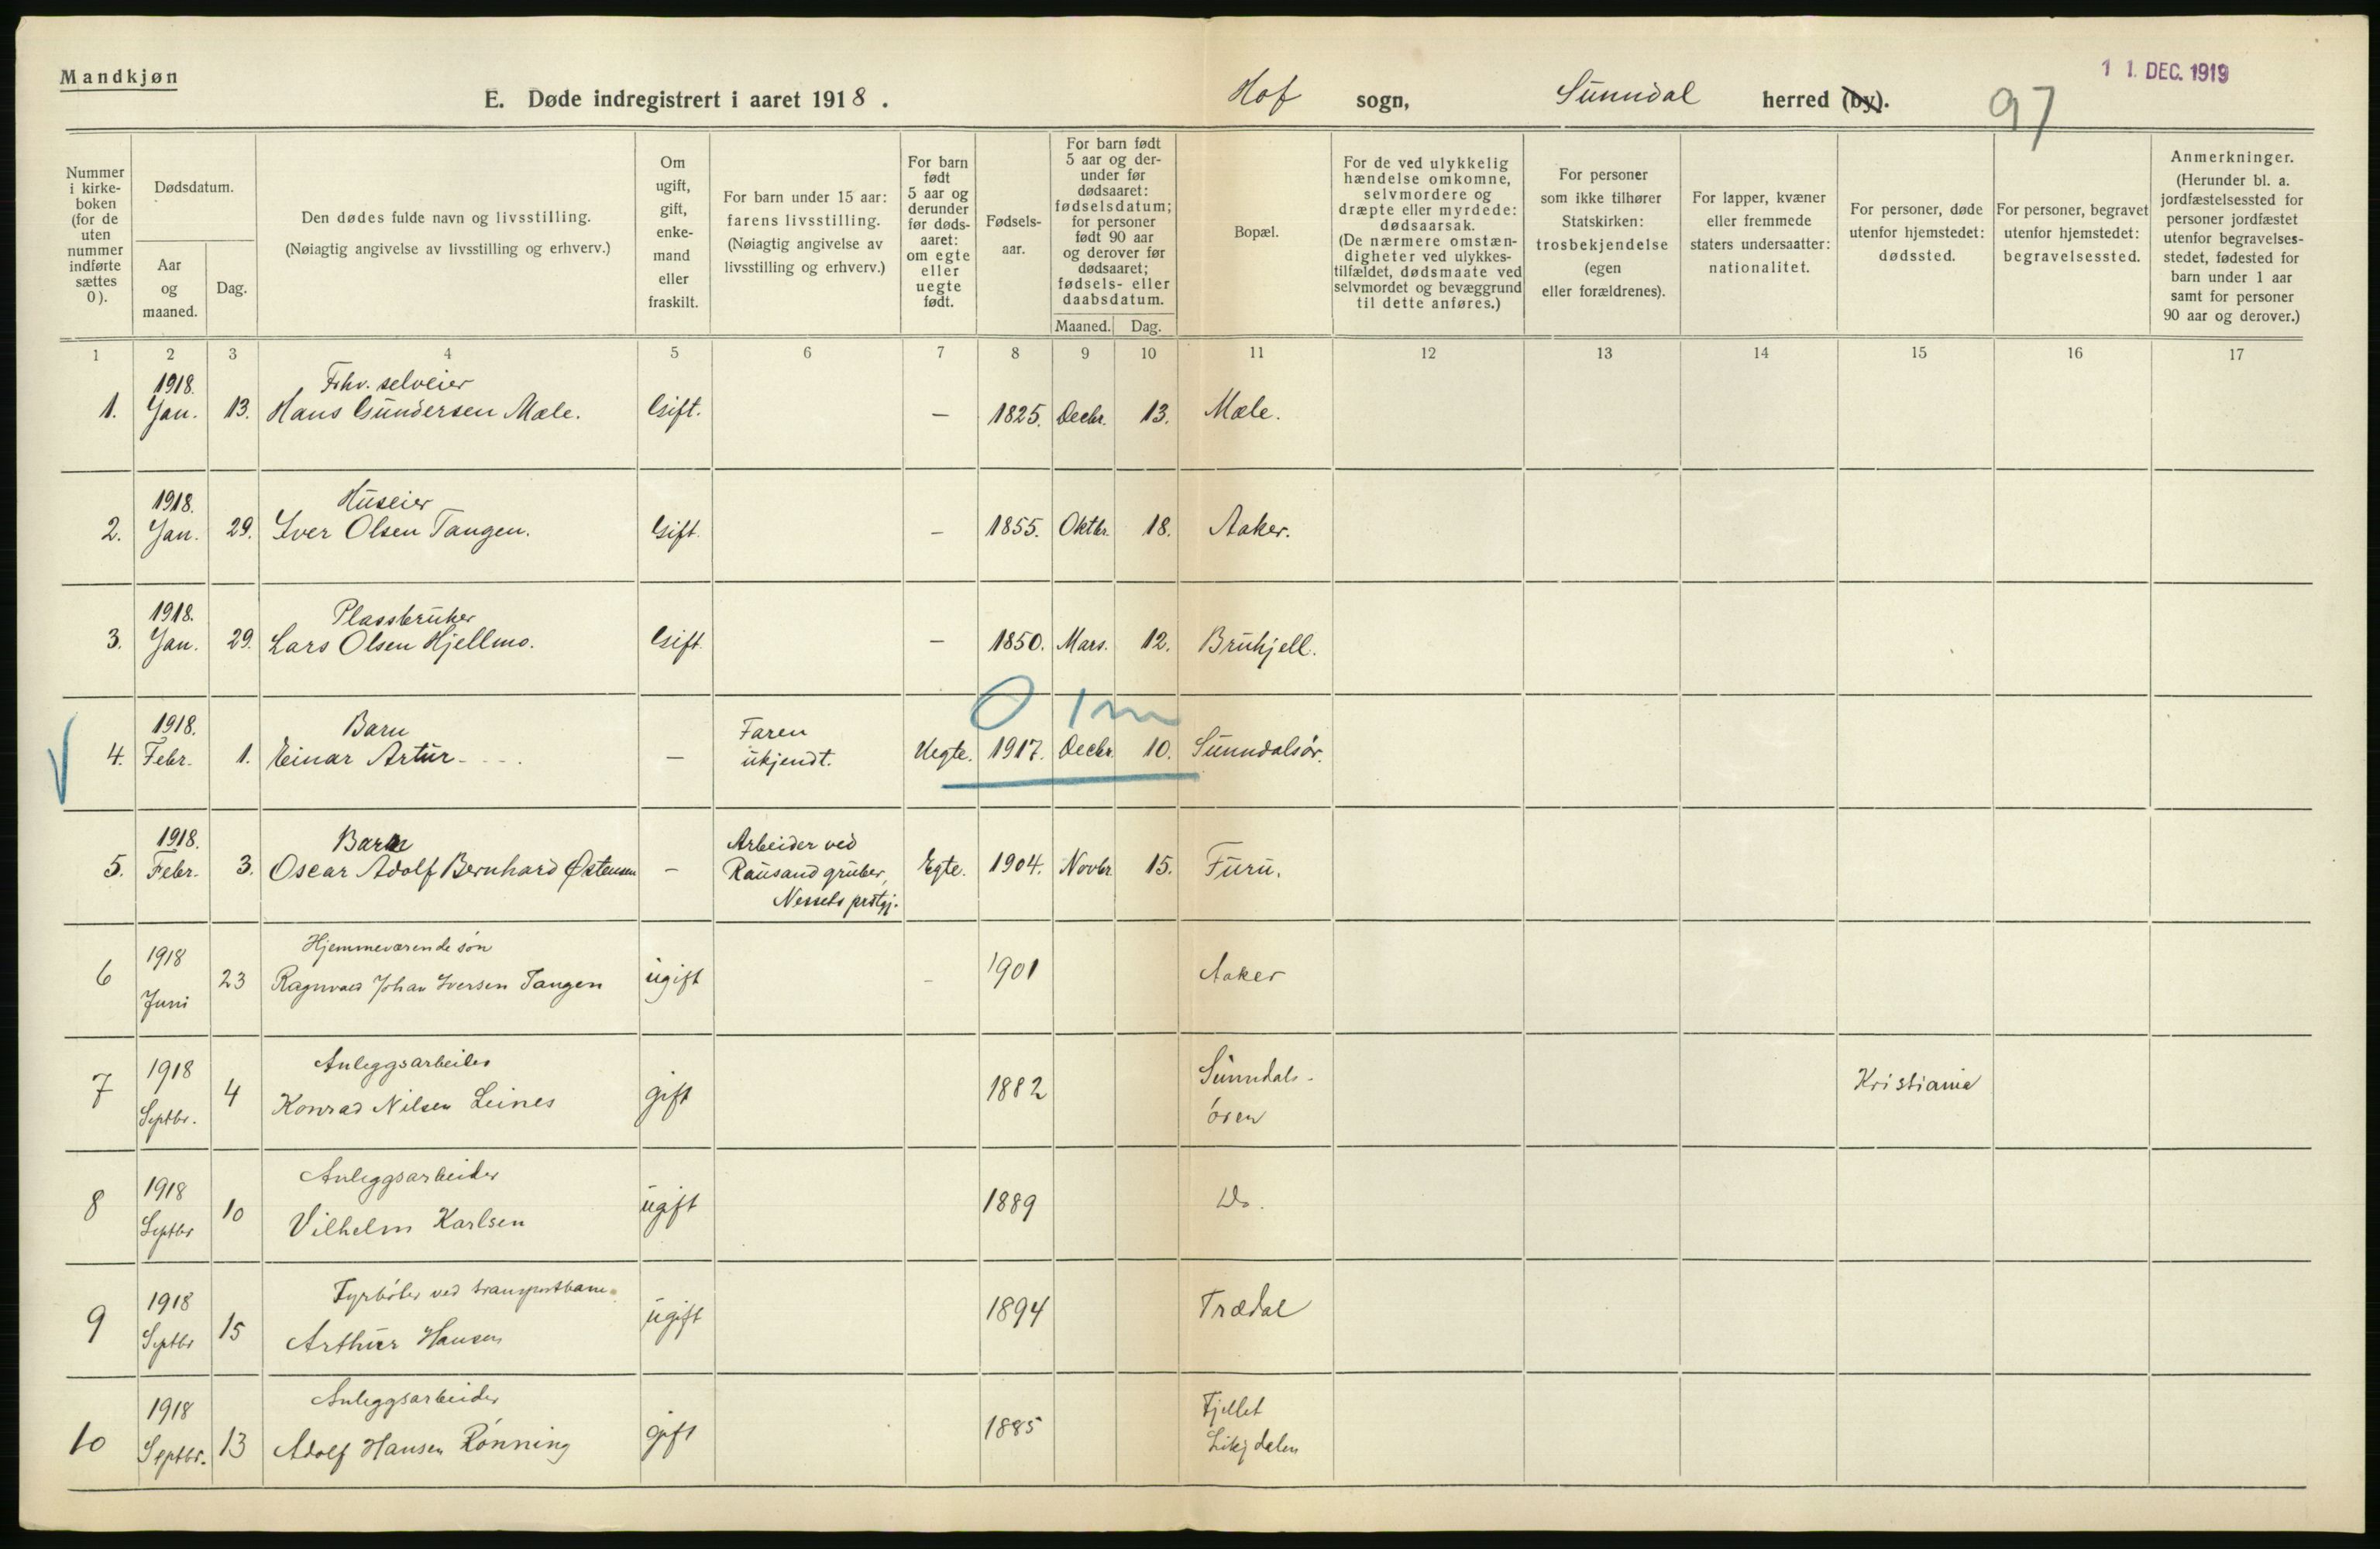 Mandkjøn
E. Døde indregistrert i aaret 1918.
Hof sogn, Sunndal herred (by).
11. DEC. 1919
97
Nummer i kirke- boken (for de uten nummer indførte sættes 0).
Dødsdatum.
Aar og maaned.
Dag.
Den dødes fulde navn og livsstilling.
(Nøiagtig angivelse av livsstilling og erhverv.)
Om ugift, gift, enke- mand eller fraskilt.
For barn under 15 aar: farens livsstilling. (Nøiagtig angivelse av livsstilling og erhverv.)
For barn født 5 aar og derunder før døds- aaret: om egte eller uegte født.
Fødsels- aar.
For barn født 5 aar og der- under før dødsaaret: fødselsdatum; for personer født 90 aar og derover før dødsaaret; fødsels- eller daabsdatum.
Maaned. Dag.
Bopæl.
For de ved ulykkelig hændelse omkomne, selvmordere og dræpte eller myrdede: dødsaarsak. (De nærmere omstæn- digheter ved ulykkes- tilfældet, dødsmaate ved selvmordet og bevæggrund til dette anføres.)
For personer som ikke tilhører Statskirken: trosbekjendelse (egen eller forældrenes).
For lapper, kvæner eller fremmede staters undersaatter: nationalitet.
For personer, døde utenfor hjemstedet: dødssted.
For personer, begravet utenfor hjemstedet: begravelsessted.
Anmerkninger. (Herunder bl. a. jordfæstelsessted for personer jordfæstet utenfor begravelses- stedet, fødested for barn under 1 aar samt for personer 90 aar og derover.)
1 2 3 4 5 6 7 8 9 10 11 12 13 14 15 16 17
1918. Fhv. selveier
1. Jan. 13. Hans Gundersen Mæle. Gift. — 1825. Decbr. 13. Mæle.
1918. Huseier
2. Jan. 29. Iver Olsen Tangen. Gift. — 1855. Oktbr. 18. Aaker.
1918. Plassbruker
3. Jan. 29. Lars Olsen Hjellmo. Gift. — 1850. Mars. 12. Bruhjell.
0 1 m
1918. Barn Faren
4. Febr. 1. Einar Artur - - - . — ukjendt. Uegte. 1917. Decbr. 10. Sunndalsør.
1918. Barn Arbeider ved
5. Febr. 3. Oscar Adolf Bernhard Østensen — Rausand gruber, Egte. 1904. Novbr. 15. Furu.
Nessets prstgj.
1918 Hjemmeværende søn
6 Juni 23 Ragnvald Johan Iversen Tangen ugift - 1901 Aaker
1918 Anleggsarbeider Sunndals-
7 Septbr. 4 Konrad Nilsen Leines gift 1882 øren Kristiania
1918 Anleggsarbeider
8 Septbr 10 Vilhelm Karlsen ugift 1889 Do.
1918 Fyrbøter ved transportbane.
9 Septbr 15 Arthur Hansen ugift 1894 Trædal
1918 Anleggsarbeider Fjellet
10 Septbr. 13 Adolf Hansen Rønning gift 1885